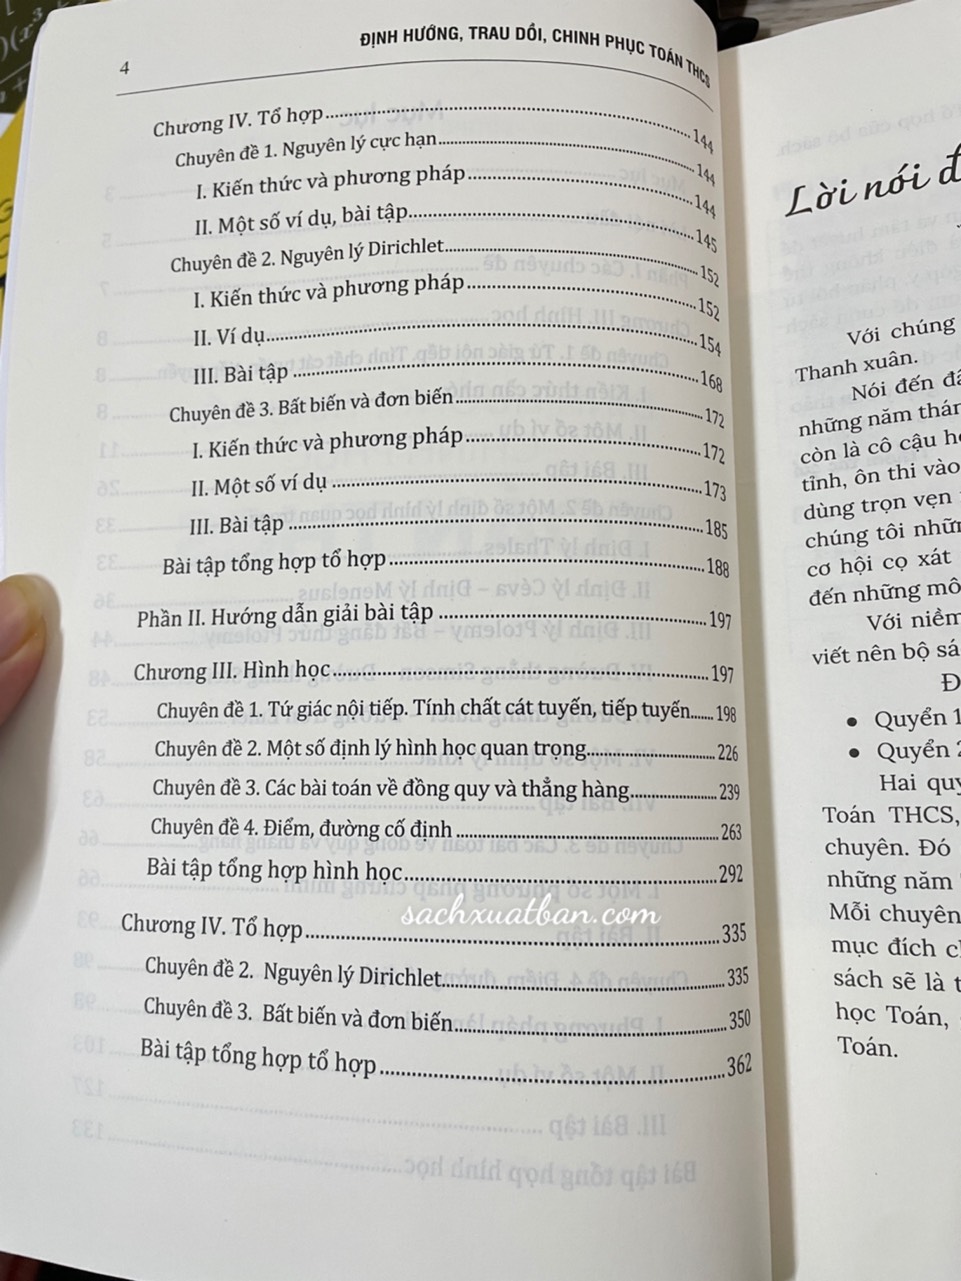 4
ĐỊNH HƯỚNG, TRAU DỒI, CHINH PHỤC TOÁN THCS
Chương IV. Tổ hợp 144
Chuyên đề 1. Nguyên lý cực hạn 144
I. Kiến thức và phương pháp 144
II. Một số ví dụ, bài tập 145
Chuyên đề 2. Nguyên lý Dirichlet 152
I. Kiến thức và phương pháp 152
II. Ví dụ 154
III. Bài tập 168
Chuyên đề 3. Bất biến và đơn biến 172
I. Kiến thức và phương pháp 172
II. Một số ví dụ 173
III. Bài tập 185
Bài tập tổng hợp tổ hợp 188
Phần II. Hướng dẫn giải bài tập 197
Chương III. Hình học 197
Chuyên đề 1. Tứ giác nội tiếp. Tính chất cát tuyến, tiếp tuyến 198
Chuyên đề 2. Một số định lý hình học quan trọng 226
Chuyên đề 3. Các bài toán về đồng quy và thẳng hàng 239
Chuyên đề 4. Điểm, đường cố định 263
Bài tập tổng hợp hình học 292
sachxuatban.com
Chương IV. Tổ hợp 335
Chuyên đề 2. Nguyên lý Dirichlet 335
Chuyên đề 3. Bất biến và đơn biến 350
Bài tập tổng hợp tổ hợp 362
Lời nói đ
Với chúng
Thanh xuân.
Nói đến đâ
những năm thán
còn là cô cậu h
tỉnh, ôn thi vào
dùng trọn vẹn
chúng tôi nhữn
cơ hội cọ xát
đến những mô
Với niềm
viết nên bộ sá
Đ
• Quyển 1
• Quyển 2
Hai quy
Toán THCS,
chuyên. Đó
những năm
Mỗi chuyên
mục đích c
sách sẽ là t
học Toán,
Toán.